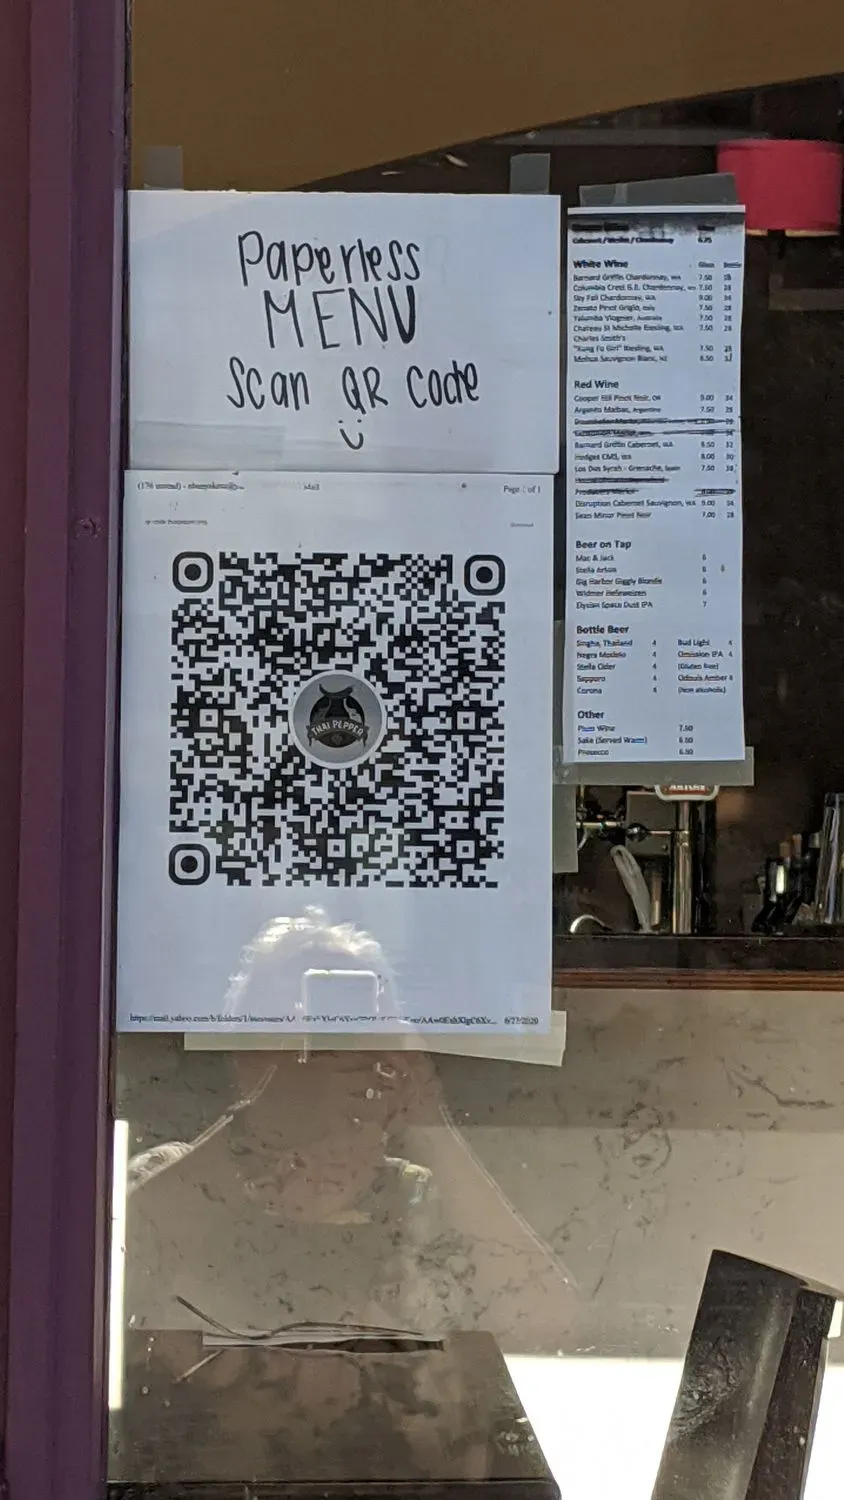 Paperless
MENU
Scan QR Code
(176 unread)
Mail
Page 1 of 1
THAI PEPPER
https://mail.yahoo.com/b/folders/1/messages/
6/27/2020
Cabernet / Merlot / Chardonnay 6.75
White Wine Glass Bottle
Barnard Griffin Chardonnay, WA 7.50 28
Columbia Crest G.E. Chardonnay, WA 7.50 28
Sky Fall Chardonnay, WA 9.00 34
Zenato Pinot Grigio, Italy 7.50 28
Yalumba Viognier, Australia 7.50 28
Chateau St Michelle Riesling, WA 7.50 28
Charles Smith's
"Kung Fu Girl" Riesling, WA 7.50 28
Mohua Sauvignon Blanc, NZ 8.50
Red Wine
Cooper Hill Pinot Noir, OR 9.00 34
Argento Malbec, Argentina 7.50 28
Barnard Griffin Cabernet, WA 8.50 32
Hedges CMS, WA 8.00 30
Los Dos Syrah - Grenache, Spain 7.50 28
Producers Merlot
Disruption Cabernet Sauvignon, WA 9.00 34
Sean Minor Pinot Noir 7.00 28
Beer on Tap
Mac & Jack 6
Stella Artois 6
Gig Harbor Giggly Blonde 6
Widmer Hefeweizen 6
Elysian Space Dust IPA 7
Bottle Beer
Singha, Thailand 4 Bud Light 4
Negra Modelo 4 Omission IPA 4
Stella Cider 4 (Gluten free)
Sapporo 4 Odouls Amber 4
Corona 4 (Non alcoholic)
Other
Plum Wine 7.50
Sake (Served Warm) 6.50
Prosecco 6.50